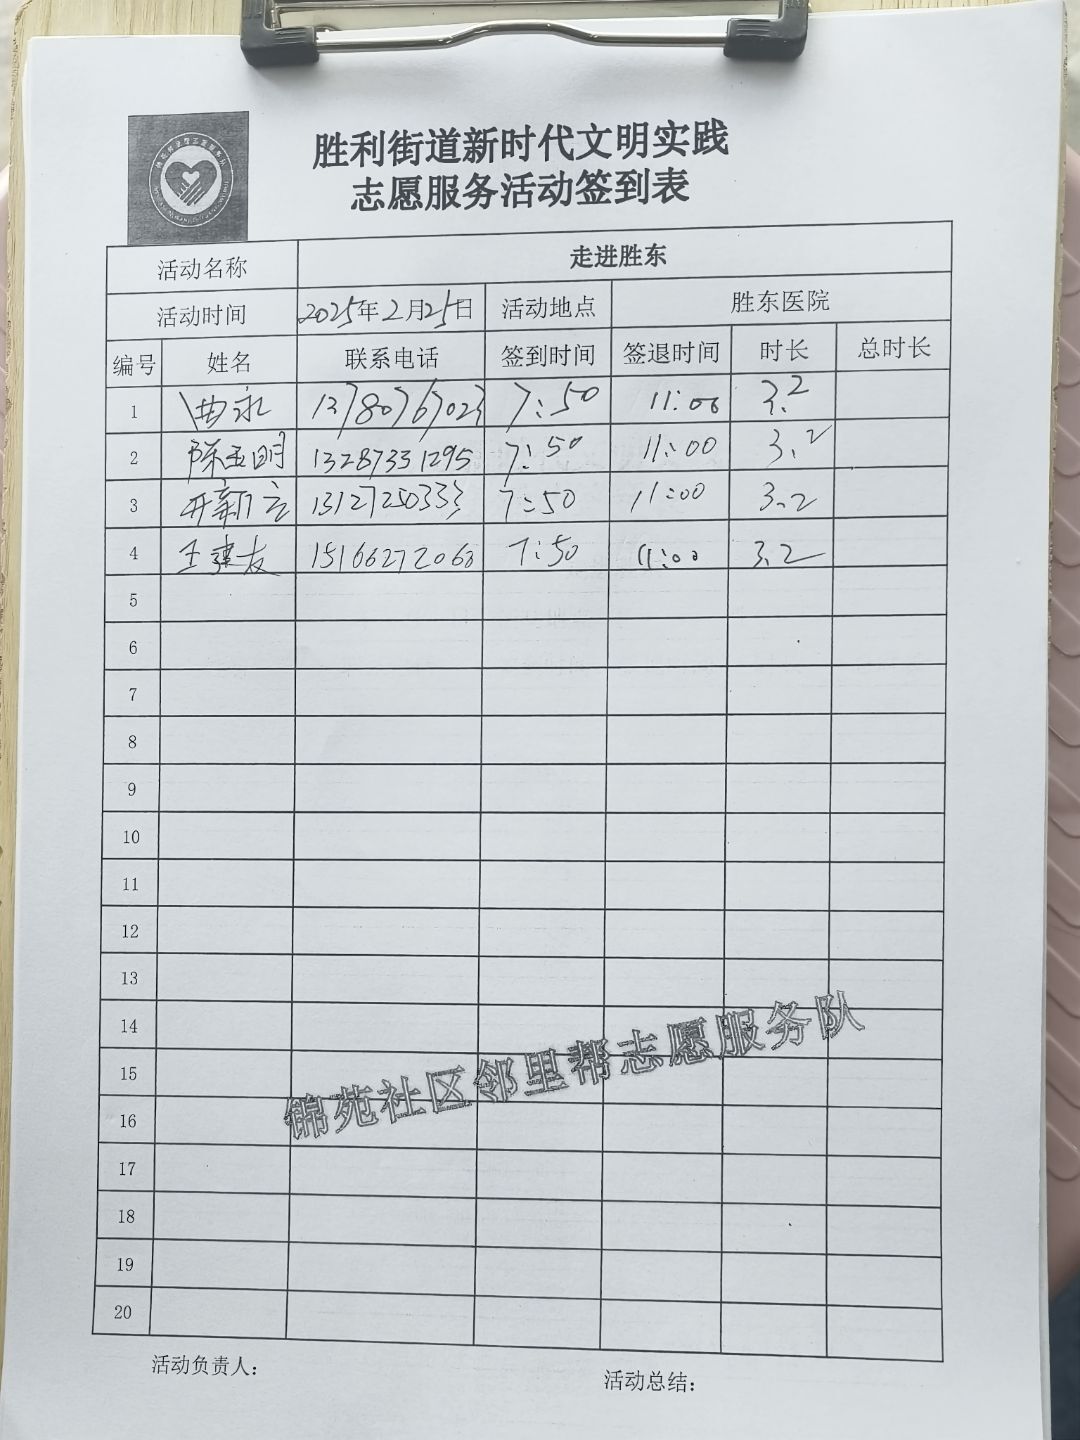 胜利街道新时代文明实践
志愿服务活动签到表
活动名称 走进胜东
活动时间 2025年2月25日 活动地点 胜东医院
编号 姓名 联系电话 签到时间 签退时间 时长 总时长
1 曲永 13780767023 7:50 11:00 3.2
2 陈玉明 13287331295 7:50 11:00 3.2
3 1312725033 7:50 11:00 3.2
4 王建友 15166272068 7:50 11:00 3.2
5
6
7
8
9
10
11
12
13
14
15
16
17
18
19
20
锦苑社区邻里帮志愿服务队
活动负责人：
活动总结：